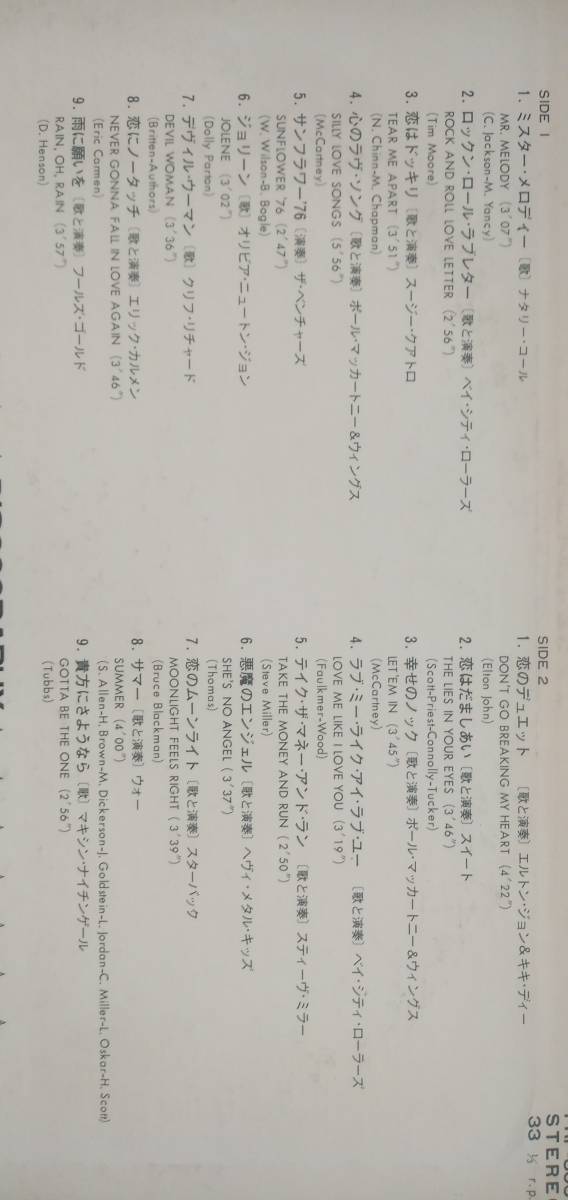 SIDE 1
1. ミスター・メロディー〔歌〕ナタリー・コール
MR. MELODY (3′07″)
(C. Jackson-M. Yancy)
2. ロックン・ロール・ラブレター〔歌と演奏〕ベイ・シティ・ローラーズ
ROCK AND ROLL LOVE LETTER (2′56″)
(Tim Moore)
3. 恋はドッキリ〔歌と演奏〕スージー・クアトロ
TEAR ME APART (3′51″)
(N. Chinn-M. Chapman)
4. 心のラヴ・ソング〔歌と演奏〕ポール・マッカートニー&ウィングス
SILLY LOVE SONGS (5′56″)
(McCartney)
5. サンフラワー'76〔演奏〕ザ・ベンチャーズ
SUNFLOWER '76 (2′47″)
(W. Wilson-B. Bogle)
6. ジョリーン〔歌〕オリビア・ニュートン・ジョン
JOLENE (3′02″)
(Dolly Parton)
7. デヴィル・ウーマン〔歌〕クリフ・リチャード
DEVIL WOMAN (3′36″)
(Britten-Authors)
8. 恋にノータッチ〔歌と演奏〕エリック・カルメン
NEVER GONNA FALL IN LOVE AGAIN (3′46″)
(Eric Carmen)
9. 雨に願いを〔歌と演奏〕フールズ・ゴールド
RAIN, OH, RAIN (3′57″)
(D. Henson)
SIDE 2
1. 恋のデュエット〔歌と演奏〕エルトン・ジョン&キキ・ディー
DON'T GO BREAKING MY HEART (4′22″)
(Elton John)
2. 恋はだましあい〔歌と演奏〕スイート
THE LIES IN YOUR EYES (3′46″)
(Scott-Priest-Connolly-Tucker)
3. 幸せのノック〔歌と演奏〕ポール・マッカートニー&ウィングス
LET'EM IN (3′45″)
(McCartney)
4. ラブ・ミー・ライク・アイ・ラブ・ユー〔歌と演奏〕ベイ・シティ・ローラーズ
LOVE ME LIKE I LOVE YOU (3′19″)
(Faulkmer-Wood)
5. テイク・ザ・マネー・アンド・ラン〔歌と演奏〕スティーヴ・ミラー
TAKE THE MONEY AND RUN (2′50″)
(Steve Miller)
6. 悪魔のエンジェル〔歌と演奏〕ヘヴィ・メタル・キッズ
SHE'S NO ANGEL (3′37″)
(Thomas)
7. 恋のムーンライト〔歌と演奏〕スターバック
MOONLIGHT FEELS RIGHT (3′39″)
(Bruce Blackman)
8. サマー〔歌と演奏〕ウォー
SUMMER (4′00″)
(S. Allen-H. Brown-M. Dickerson-J. Goldstein-L. Jordan-C. Miller-L. Oskar-H. Scott)
9. 貴方にさようなら〔歌〕マキシン・ナイチンゲール
GOTTA BE THE ONE (2′56″)
(Tubbs)
33 ⅓ r.p